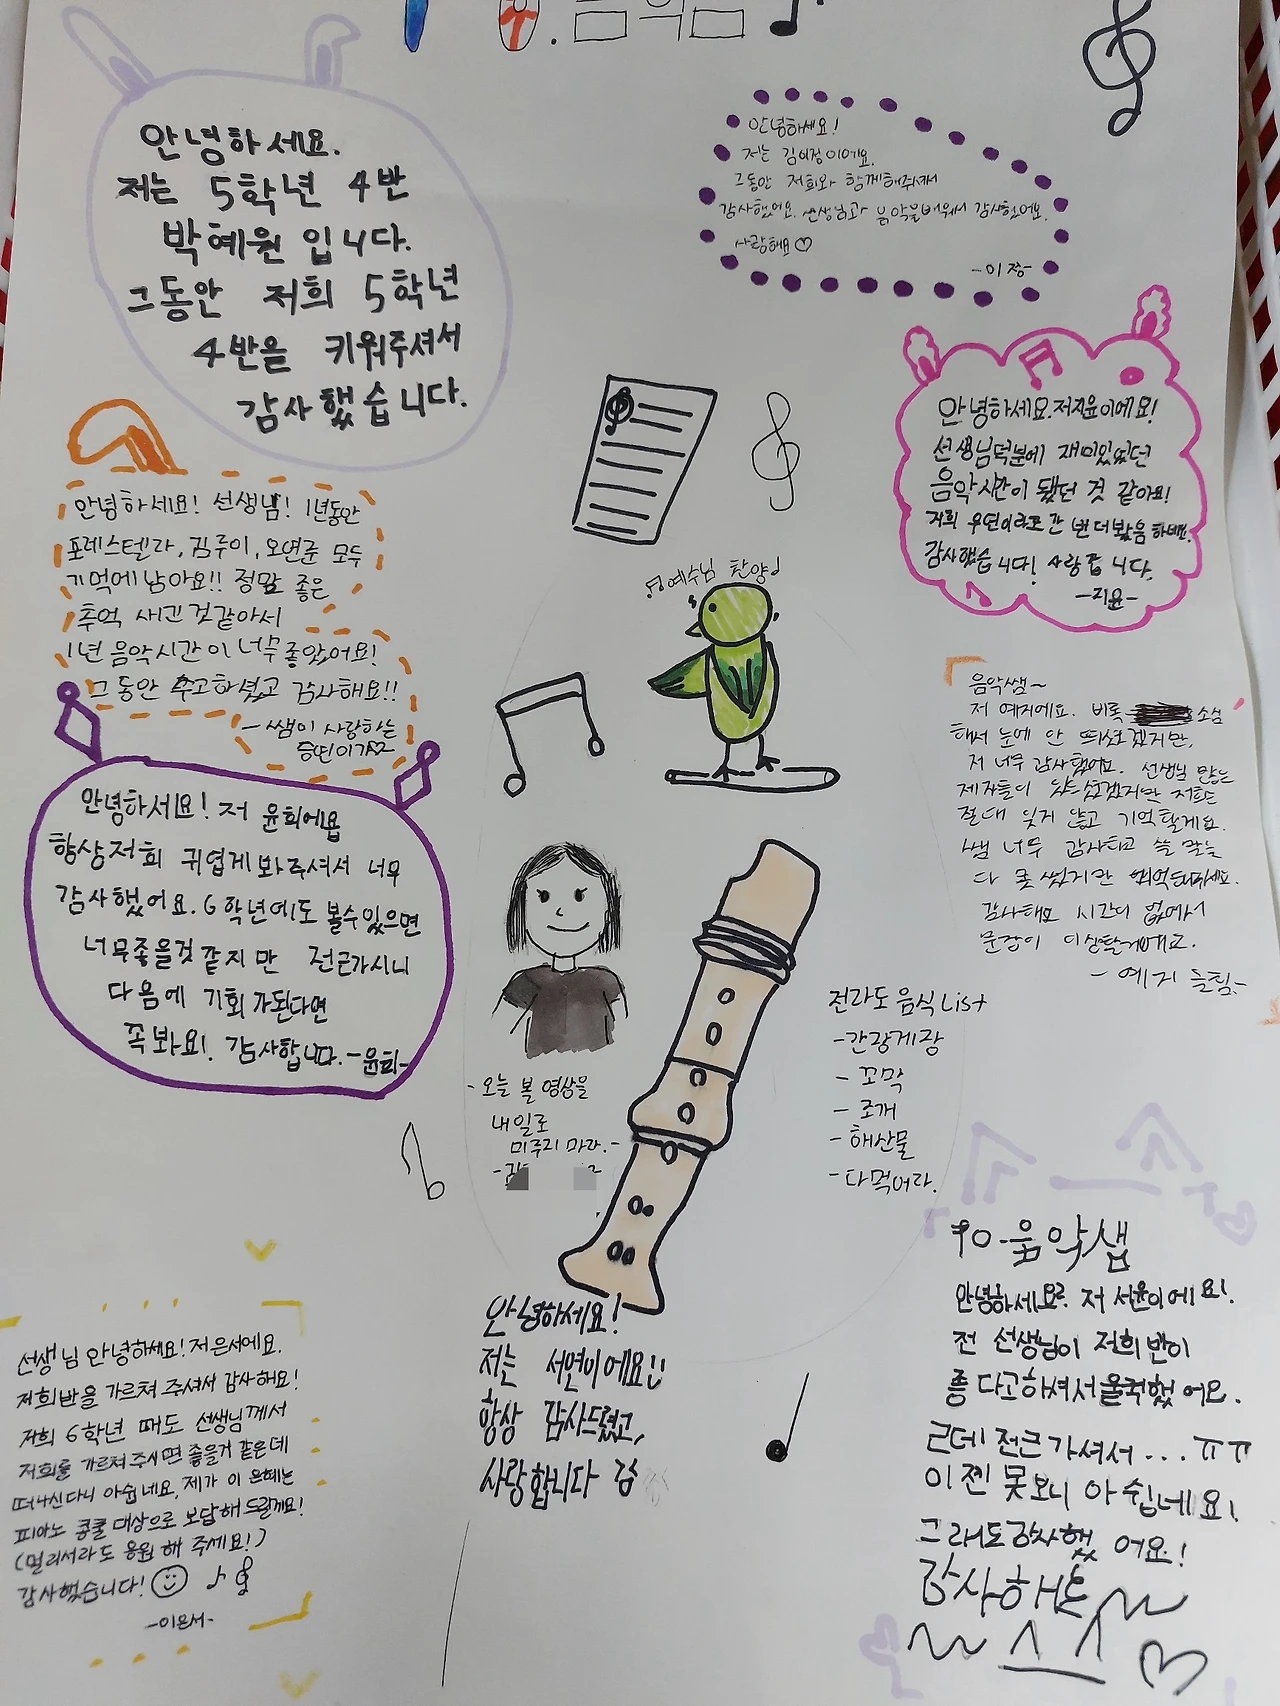 음악
안녕하세요.
저는 5학년 4반
박혜원 입니다.
그동안 저희 5학년
4반을 키워주셔서
감사했습니다.
안녕하세요!
저는 김이정이에요.
그동안 저희와 함께해주셔서
감사했어요. 선생님과 음악을배워서 감사했어요.
사랑해요♡
-이정-
안녕하세요. 저지윤이에요!
선생님덕분에 재미있었던
음악시간이 됐던 것 같아요!
저희 우연이라도 간 번 더 봤음 하네요.
감사했습니다! 사랑합니다.
-지윤-
안녕하세요! 선생님! 1년동안
포레스텔라, 김주이, 오연준 모두
기억에 남아요!! 정말 좋은
추억 새긴 것같아서
1년 음악시간이 너무좋았어요!
그동안 수고하셨고 감사해요!!
-쌤이 사랑하는
승연이가♡
♬예수님 찬양♩
음악쌤~
저 예지에요. 비록 소심
해서 눈에 안 띄셨겠지만,
저 너무 감사했어요. 선생님 많은
제자들이 있으셨겠지만 저희는
절대 잊지 않고 기억할게요.
쌤 너무 감사하고 쓸 말는
다 못 썼지만 기억해주세요.
감사해요 시간이 없어서
문장이 이상할거예요.
-예지 올림-
안녕하세요! 저 윤희에욥
항상저희 귀엽게봐주셔서 너무
감사했어요. 6학년에도 볼수있으면
너무좋을것 같지만 전근가시니
다음에 기회가된다면
꼭봐요! 감사합니다. -윤희-
전라도 음식 List
-간장게장
-꼬막
-조개
-해산물
-다먹어라.
-오늘 볼 영상을
내일로
미루지 마라.-
To.음악샘
안녕하세요? 저 서윤이에요!
전 선생님이 저희반이
좀 다고하셔서울국했어요.
근데 전근가셔서...ㅠㅠ
이젠 못보니 아쉽네요!
그래도감사했어요!
감사해요
안녕하세요!
저는 서연이에요!!
항상 감사드렸고,
사랑합니다
선생님 안녕하세요! 저은서에요.
저희반을 가르쳐 주셔서 감사해요!
저희 6학년 때도 선생님께서
저희를 가르쳐주시면 좋을거 같은데
떠나신다니 아쉽네요. 제가 이 은혜는
피아노 콩쿨 대상으로 보답해 드릴께요!
(멀리서라도 응원 해 주세요!)
감사했습니다!
-이은서-